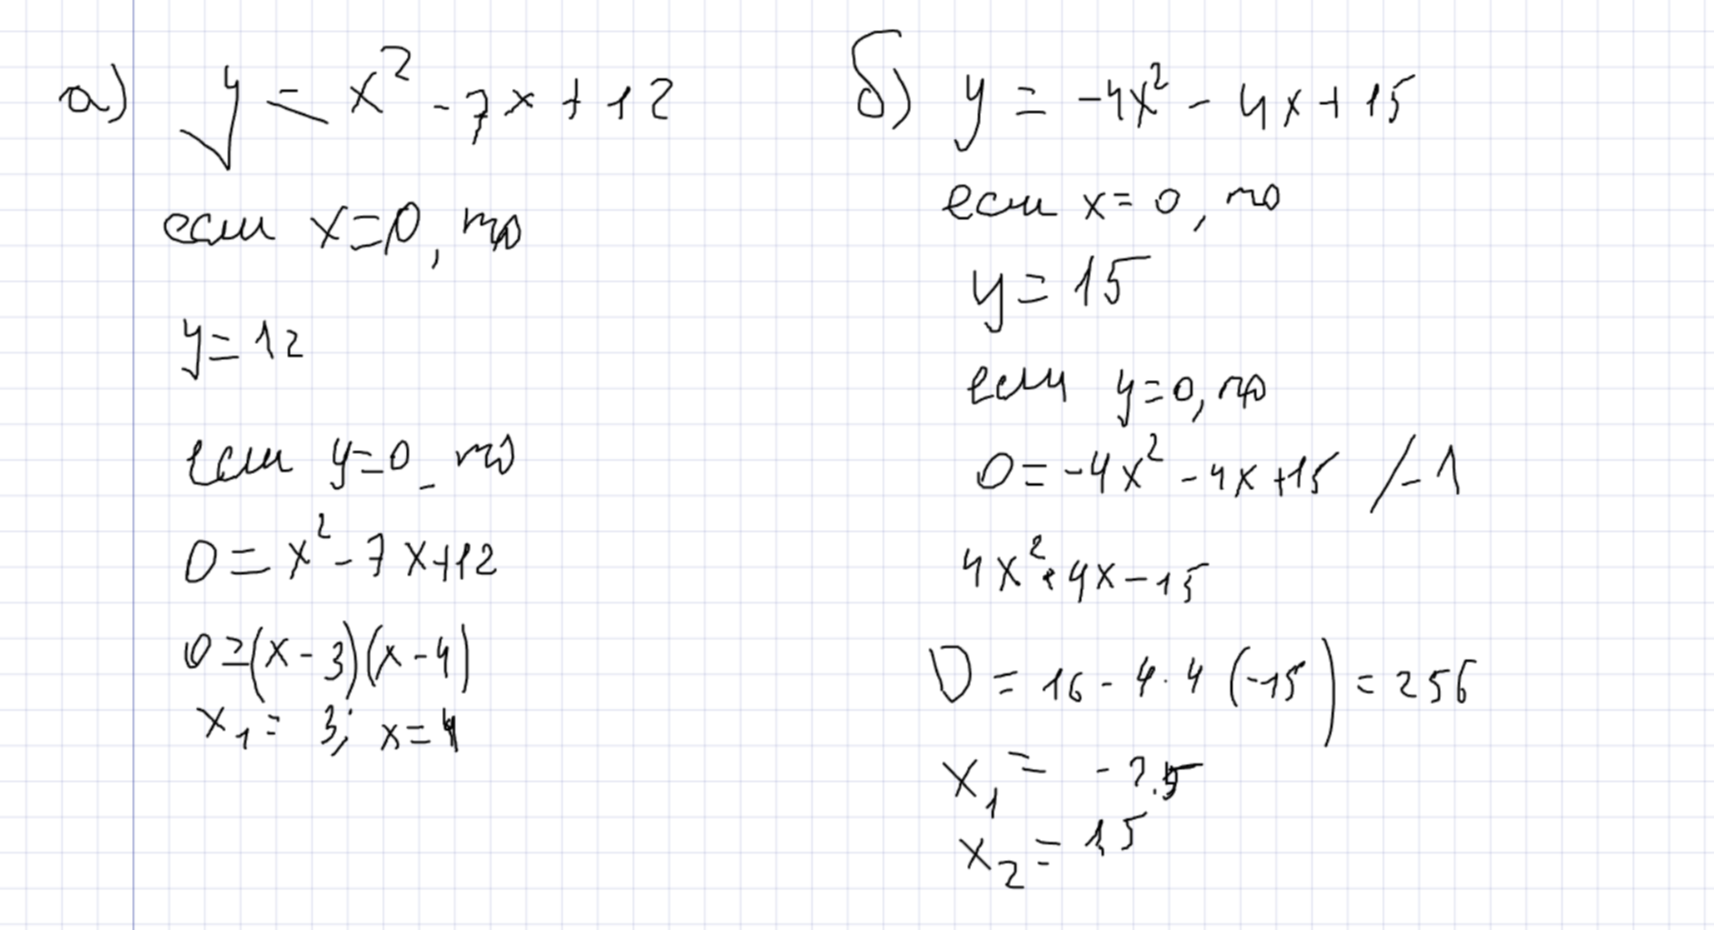 а) y = x² - 7x + 12
если x=0, то
y=12
если y=0, то
0=x²-7x+12
0=(x-3)(x-4)
x₁= 3; x=4
б) y = -4x² - 4x + 15
если x=0, то
y=15
если y=0, то
0=-4x²-4x+15 /-1
4x²+4x-15
D = 16 - 4·4 (-15) = 256
x₁ = -2.5
x₂ = 1,5